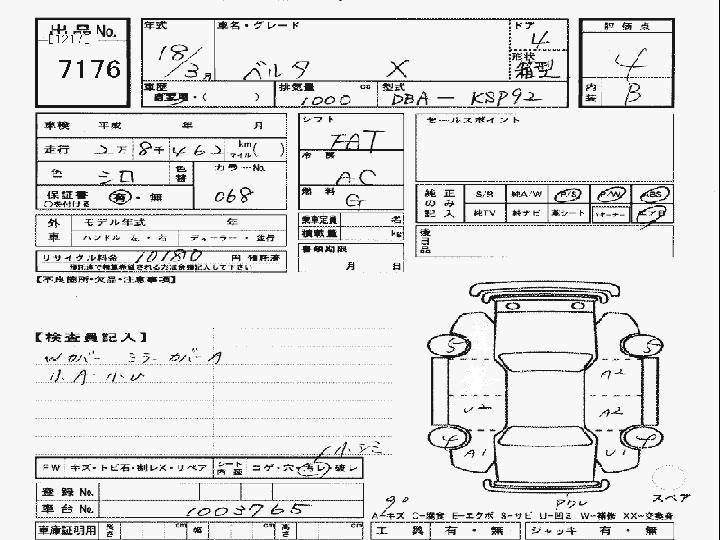 出品No.
7176
年式 車名・グレード ドア
18/3月 ベルタ X 4
形状 箱型
車歴 自家用・( ) 排気量 cc 型式
1000 DBA-KSP92
評価点
4
内装 B
車検 平成 年 月
走行 2万8千462 km マイル( )
色 シロ 色替 カラーNo.
保証書 有・無 068
シフト FAT
冷房 AC
燃料 G
セールスポイント
純正のみ記入 S/R 純A/W P/S P/W ABS
純TV 純ナビ 革シート エアB
後日品
外車 モデル年式 年
ハンドル 左・右 ディーラー・並行
乗車定員 名
積載量 kg
書類期限
月 日
リサイクル料金 10180 円 預託済
預託済で検車希望される方は金額記入して下さい
【不良箇所・欠品・注意事項】
【検査員記入】
Wカバー ミラーカバーA
小A 小U
小シミ
FW キズ・トビ石・割レX・リペア シート内装 コゲ・穴・汚レ・破レ
登録No.
車台No. 1003765
車庫証明用 長さ cm 幅 cm 高さ cm
5 5
A2
U2 A2
4 4
A1 U1
90 アワレ スペア
A-キズ C-腐食 E-エクボ S-サビ U-凹ミ W-補修 XX-交換済
工具 有・無 ジャッキ 有・無